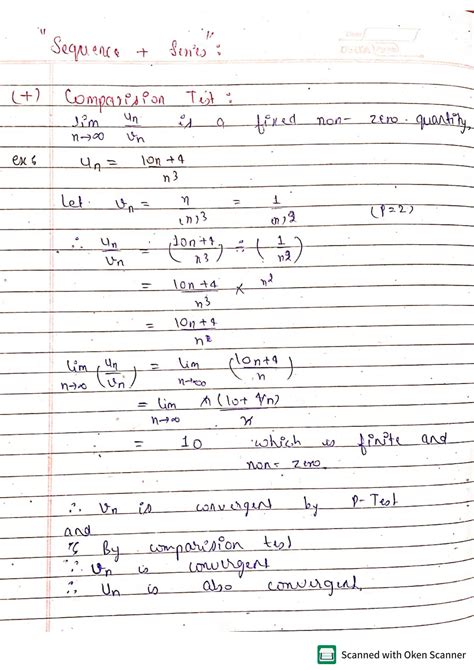 "Sequence + Series":
(+) Comparision Test:
lim n→∞ un/vn is a fixed non-zero quantity.
ex: un = 10n+4/n3
Let vn = n/n3 = 1/n2 (p=2)
∴ un/vn = (10n+4/n3) ÷ (1/n2)
= 10n+4/n3 × n2
= 10n+4/n2
lim n→∞ (un/vn) = lim n→∞ (10n+4/n)
= lim n→∞ n(10+4/n)/n
= 10 which is finite and
non-zero
∴ vn is convergent by P-Test
and
By comparision test
∵ vn is convergent
∴ un is also convergent
Scanned with Oken Scanner